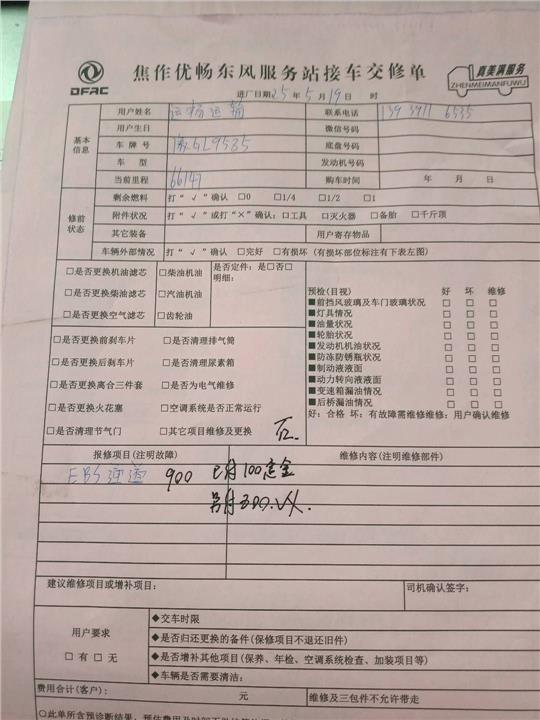 DFAC
焦作优畅东风服务站接车交修单
真美满服务
ZHENMEIMANFUWU
进厂日期 25 年 5 月 19 日 时
基本信息
用户姓名 运杨运输 联系电话 139 3911 6535
用户生日 微信号码
车牌号 底盘号码
车 型 发动机号码
当前里程 66147 购车时间 年 月 日
修前状态
剩余燃料 打“√”确认 □0 □1/4 □1/2 □1
附件状况 打“√”或打“×”确认:□工具 □灭火器 □备胎 □千斤顶
其它装备 用户寄存物品
车辆外部情况 打“√”确认 □完好 □有损坏(有损坏部位标注有下表左图)
□是否更换机油滤芯 □柴油机油 是否定件:是□否□
明细:
□是否更换柴油滤芯 □汽油机油
□是否更换空气滤芯 □齿轮油
预检(目视) 好 坏 维修
■前挡风玻璃及车门玻璃状况 □ □ □
■灯具情况 □ □ □
■油量状况 □ □ □
■轮胎状况 □ □ □
■发动机机油状况 □ □ □
■防冻防锈瓶状况 □ □ □
■制动液液面 □ □ □
■动力转向液液面 □ □ □
■变速箱漏油情况 □ □ □
■后桥漏油情况 □ □ □
好:合格 坏:有故障需维修维修:用户确认维修
□是否更换前刹车片 □是否清理排气筒
□是否更换后刹车片 □是否清理尿素箱
□是否更换离合三件套 □是否为电气维修
□是否更换火花塞 □空调系统是否正常运行
□是否清理节气门 □其它项目维修及更换
报修项目(注明故障) 维修内容(注明维修部件)
EBS 900 已付100定金
另付800.
建议维修项目或增补项目: 司机确认签字:
用户要求
□有 □无
◆交车时限
◆是否归还更换的备件(保修项目不退还旧件)
◆是否增补其他项目(保养、年检、空调系统检查、加装项目等)
◆车辆是否需要清洁:
费用合计(客户): 元 维修及三包件不允许带走